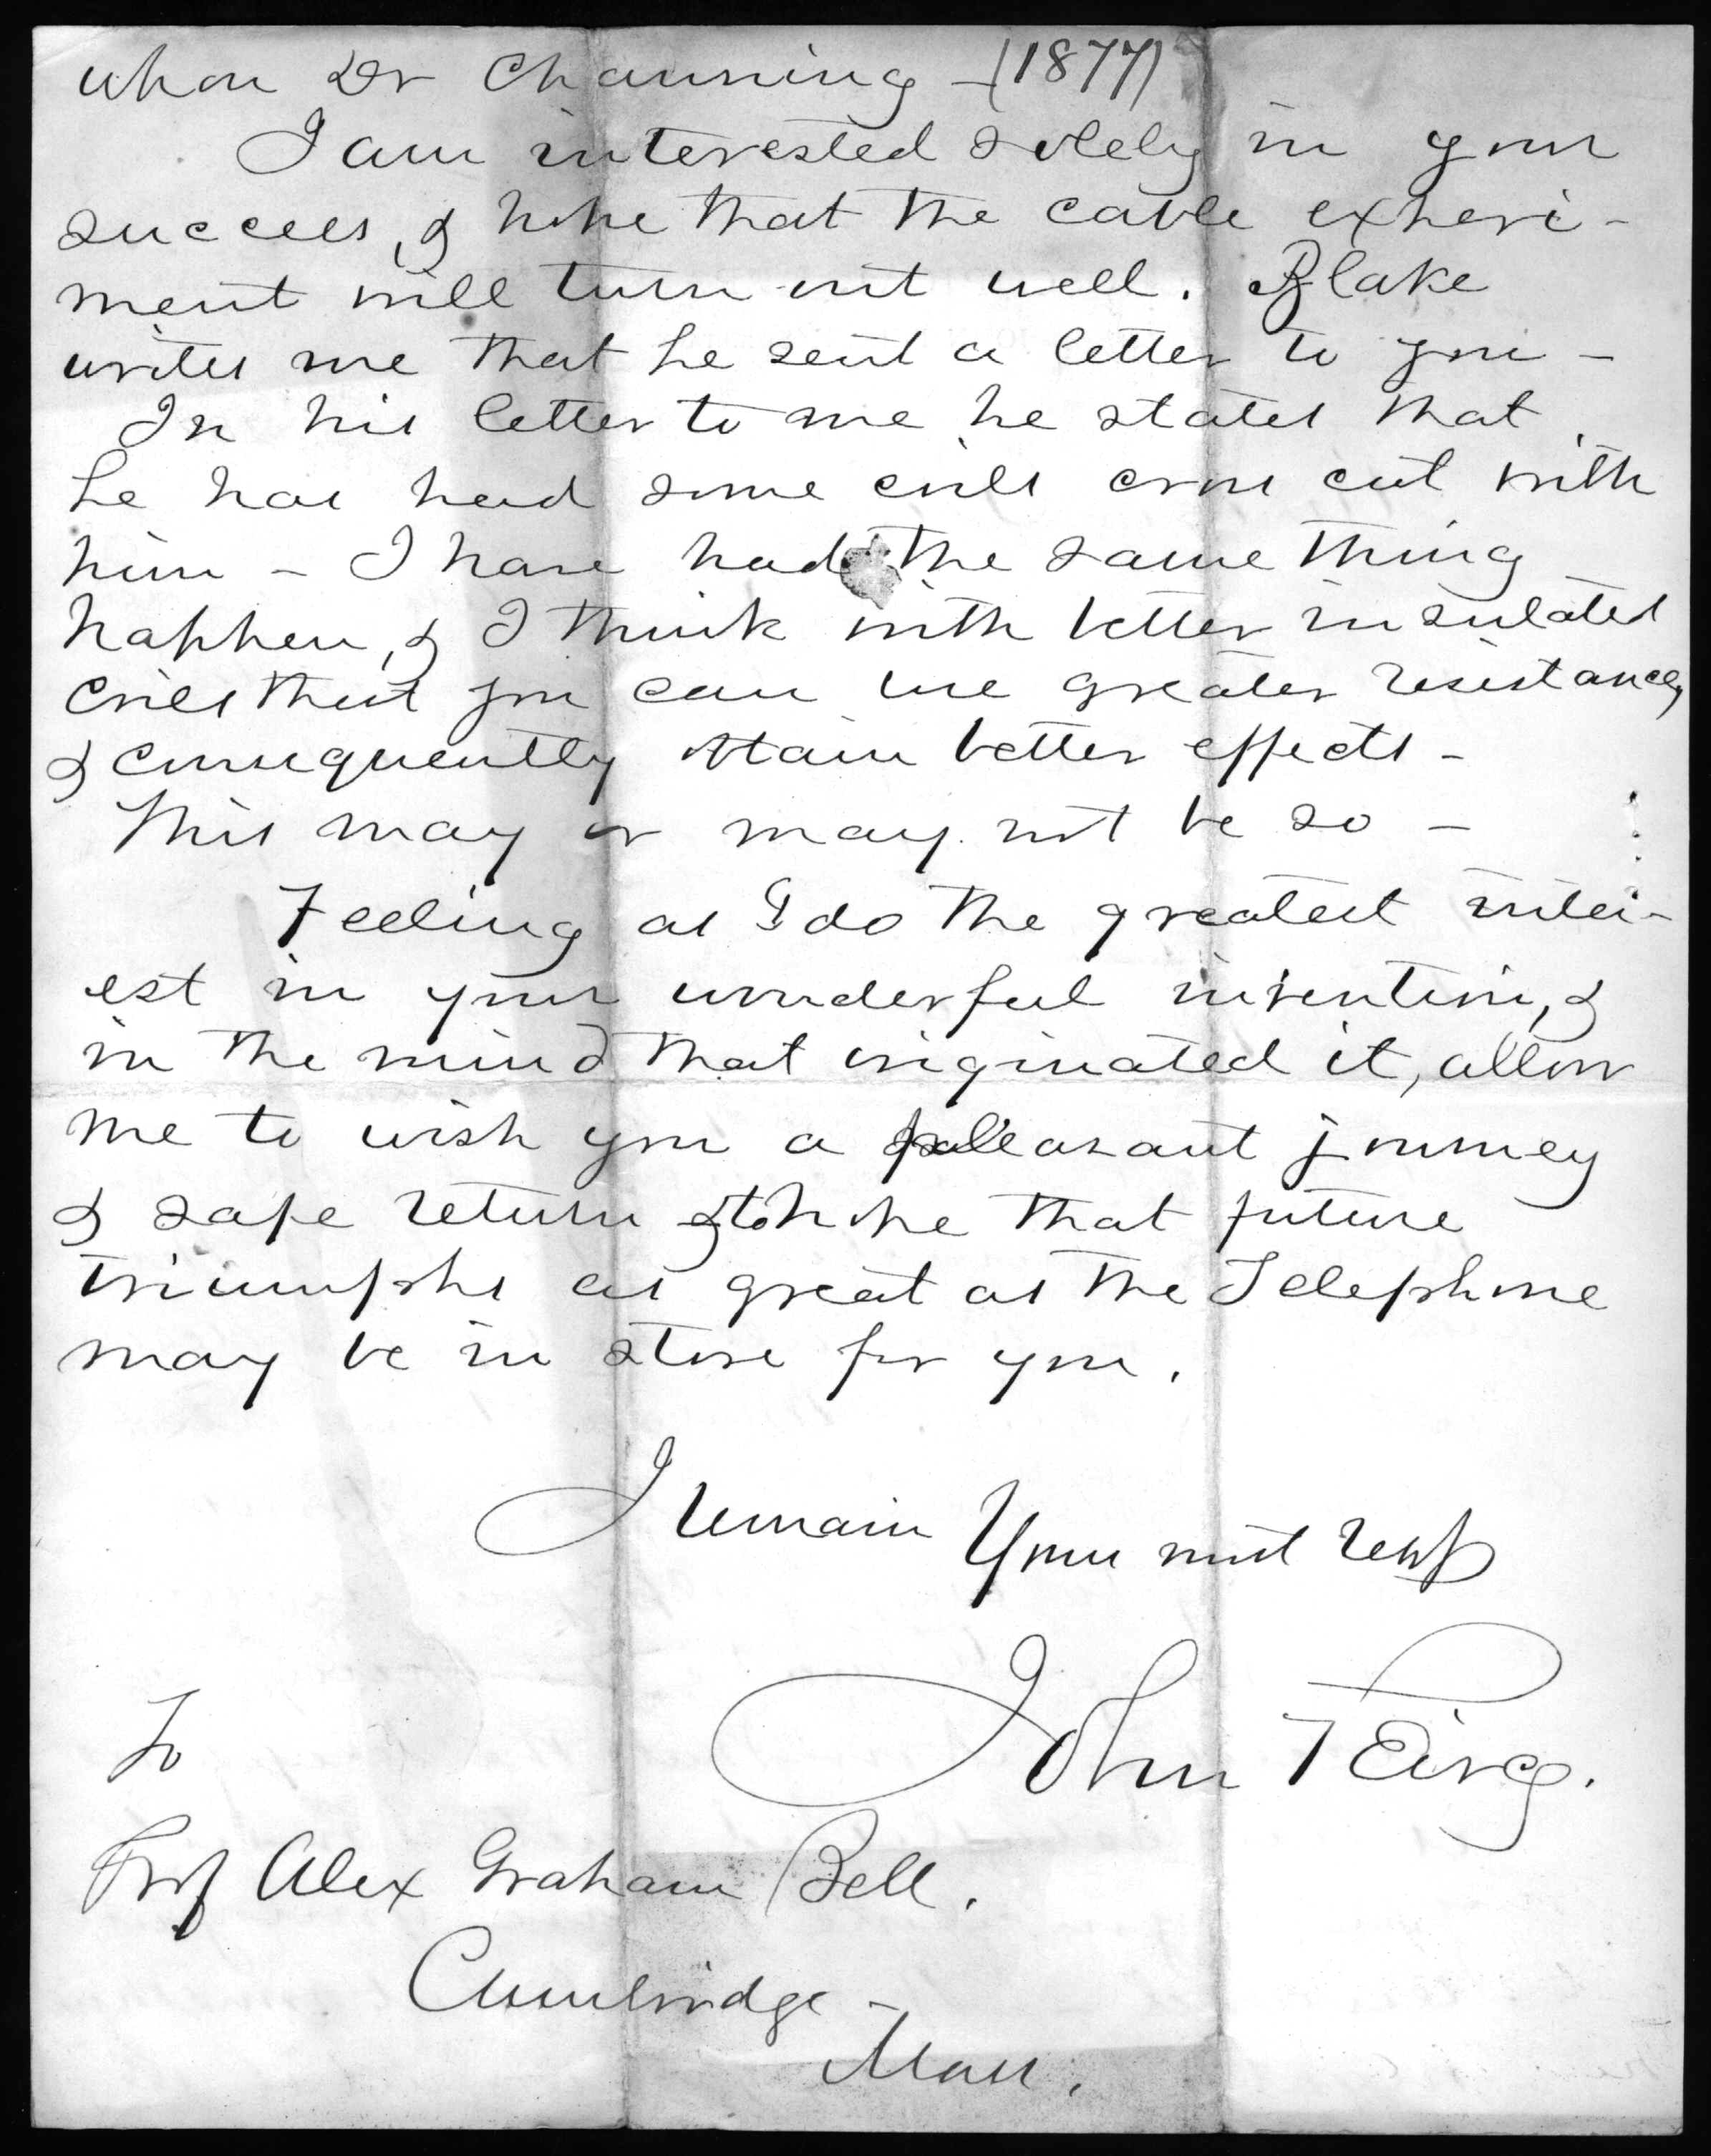 upon Dr Channing - (1877)
I am interested solely in your
success, & hope that the cable experi-
ment will turn out well. Blake
writes me that he sent a letter to you -
In his letter to me he states that
he has had some coils cross cut with
him - I have had the same thing
happen, & I think with better insulated
coils that you can use greater resistances,
& consequently obtain better effects -
This may or may not be so -
Feeling as I do the greatest inter-
est in your wonderful invention, &
in the mind that originated it, allow
me to wish you a pleasant journey
& safe return & to hope that future
triumphs as great as the Telephone
may be in store for you.
I remain Your most resp
John Peirce.
To
Prof Alex Graham Bell.
Cambridge -
Mass.